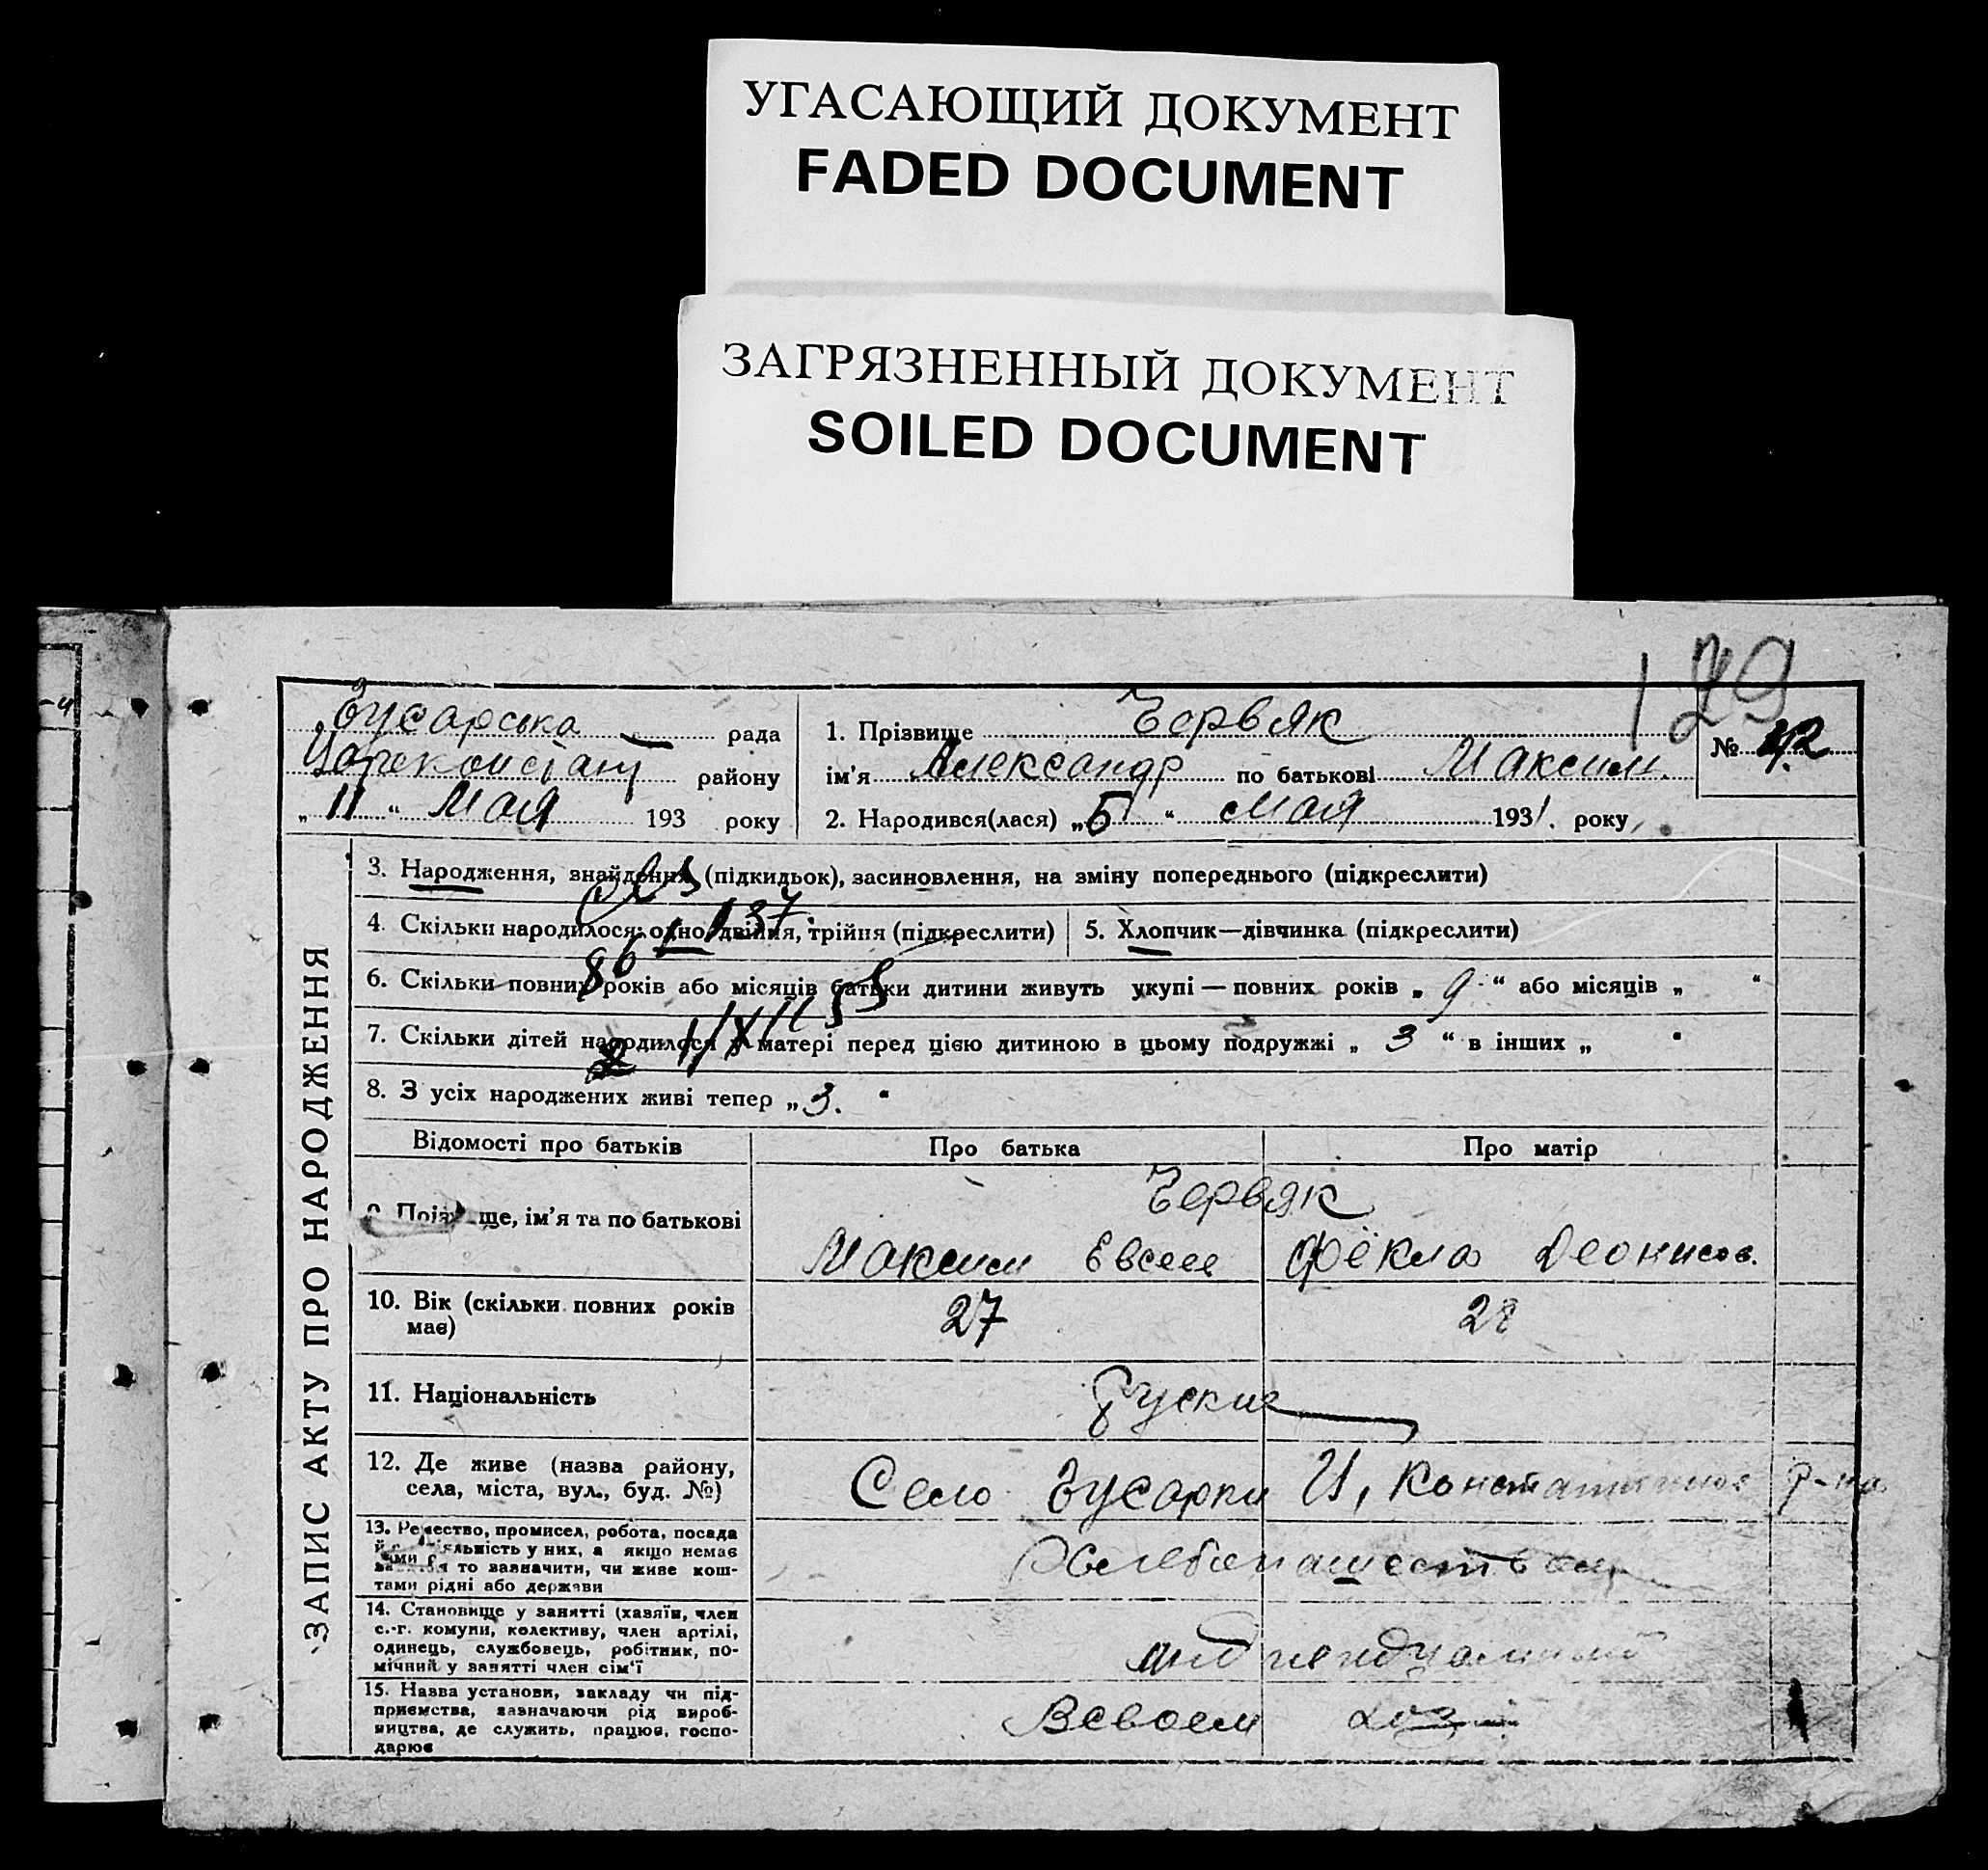 УГАСАЮЩИЙ ДОКУМЕНТ
FADED DOCUMENT
ЗАГРЯЗНЕННЫЙ ДОКУМЕНТ
SOILED DOCUMENT
129
рада
району
„ 11 “ Мая 193 року
1. Прізвище Червяк
ім'я Александр по батькові Максим.
№ 42
2. Народився(лася) „ 5 “ мая 1931. року
ЗАПИС АКТУ ПРО НАРОДЖЕННЯ
3. Народження, знайдення (підкидьок), засиновлення, на зміну попереднього (підкреслити)
4. Скільки народилося: одно, двійня, трійня (підкреслити)
5. Хлопчик—дівчинка (підкреслити)
6. Скільки повних років або місяців батьки дитини живуть укупі — повних років „ 9 “ або місяців „ “
7. Скільки дітей народилося у матері перед цією дитиною в цьому подружжі „ 3 “ в інших „ “
8. З усіх народжених живі тепер „ 3. “
Відомості про батьків
Про батька
Про матір
9. Прізвище, ім'я та по батькові
Червяк
Максим Евсее
Фёкла Деонисов.
10. Вік (скільки повних років
має)
27
28
11. Національність
Руские
12. Де живе (назва району,
села, міста, вул., буд. №)
Село Гусарки Ц, Константинов р-на
13. Ремество, промисел, робота, посада
то зазначити, чи живе кош-
тами рідні або держави
Хлебопашеством
14. Становище у занятті (хазяїн, член
с.-г. комуни, колективу, член артілі,
одинець, службовець, робітник, по-
мічний у занятті член сім'ї
индивидуальный
15. Назва установи, закладу чи під-
приємства, зазначаючи рід вироб-
ництва, де служить, працює, госпо-
дарює
Всвоем хоз